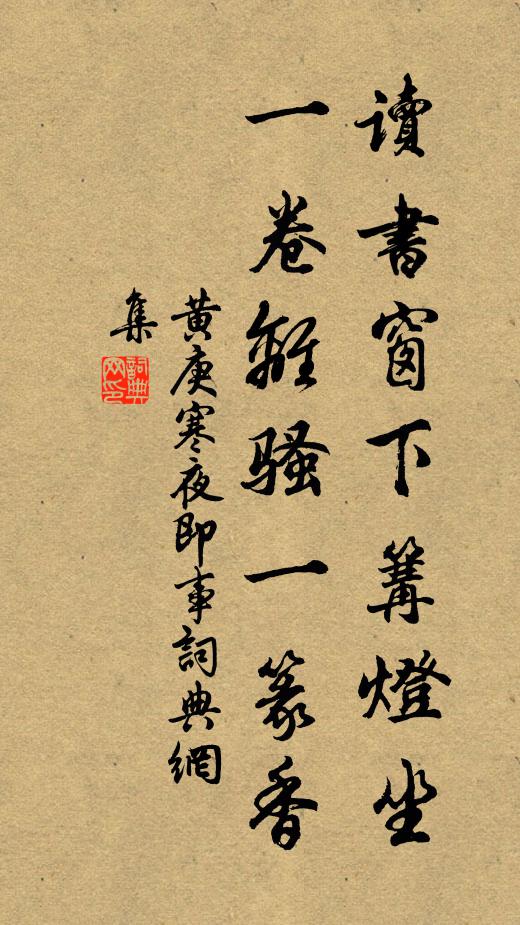 讀書窗下篝燈坐
一卷離騷一篆香
黃庚寒夜即事詞典網
集
詞典網印